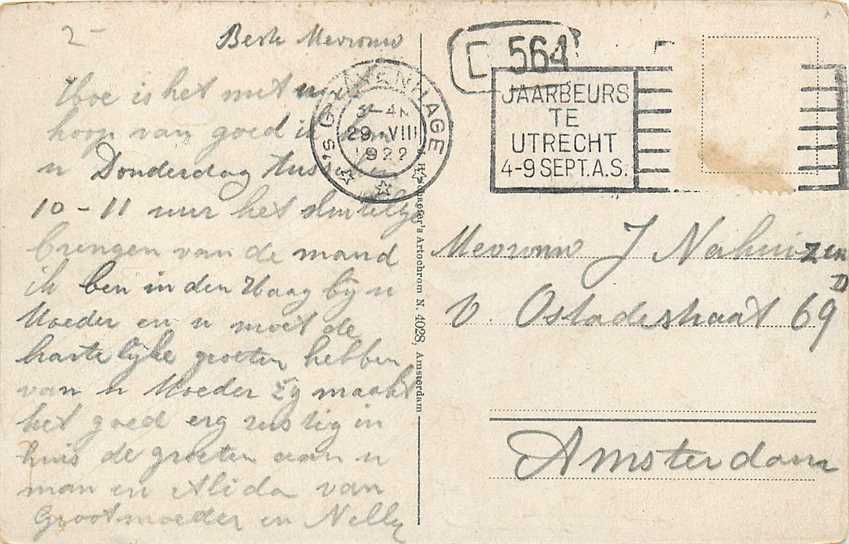 2-
Beste Mevrouw
Hoe is het met u
hoop van goed ik
u Donderdag tus
10-11 uur het sleuteltje
brengen van de mand
ik ben in den Haag bij u
Moeder en u moet de
hartelijke groeten hebben
van u Moeder Zij maakt
het goed erg rustig in
huis de groeten aan u
man en Alida van
Grootmoeder en Nelly
's GRAVENHAGE
29.VIII
1922
564
JAARBEURS
TE
UTRECHT
4-9 SEPT.A.S.
Artochrom N. 4028, Amsterdam
Mevrouw J Nahuizen
v. Ostadestraat 69
II
Amsterdam